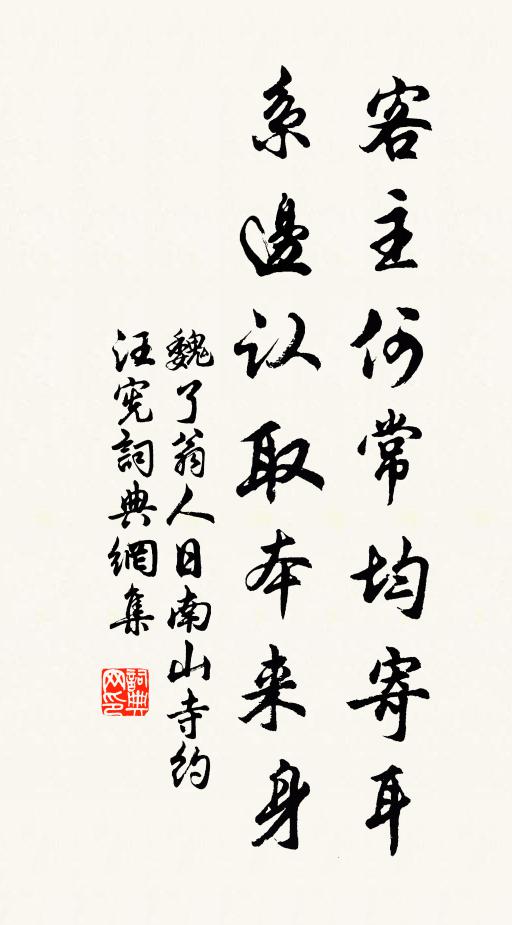 客主何常均寄耳
系邊认取本来身
魏了翁人日南山寺约
汪宪詞典網集
詞典网印